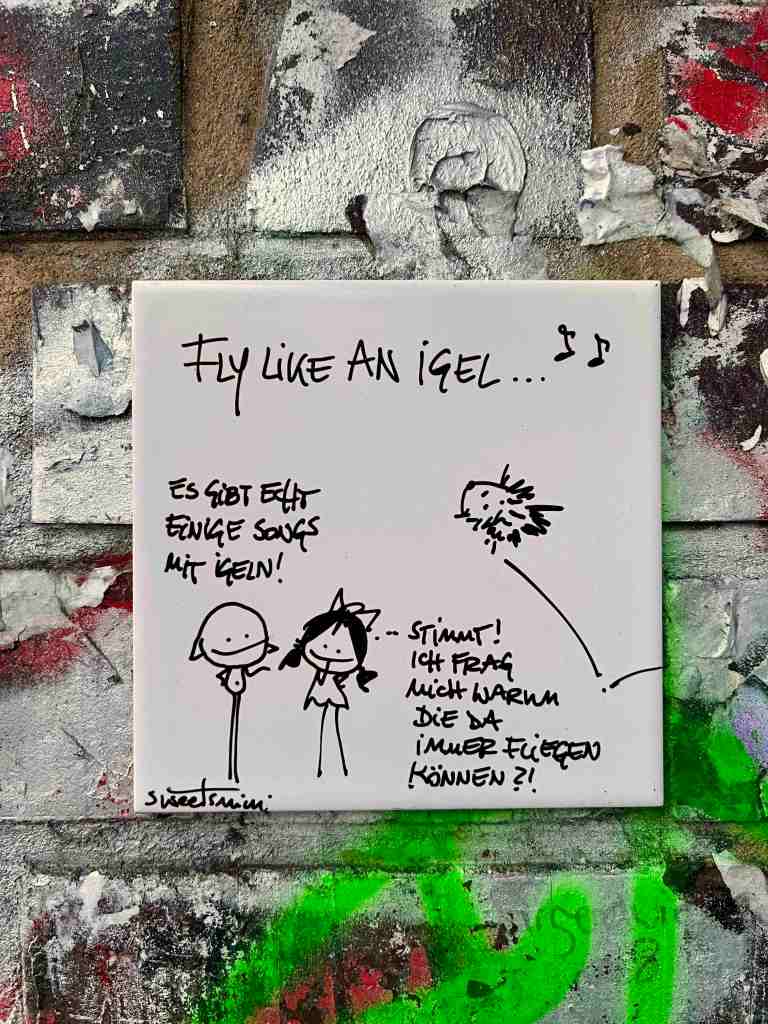 FLY LIKE AN IGEL...
ES GIBT ECHT
EINIGE SONGS
MIT IGELN!
STIMMT!
ICH FRAG
MICH WARUM
DIE DA
IMMER FLIEGEN
KÖNNEN?!
sweetsnini